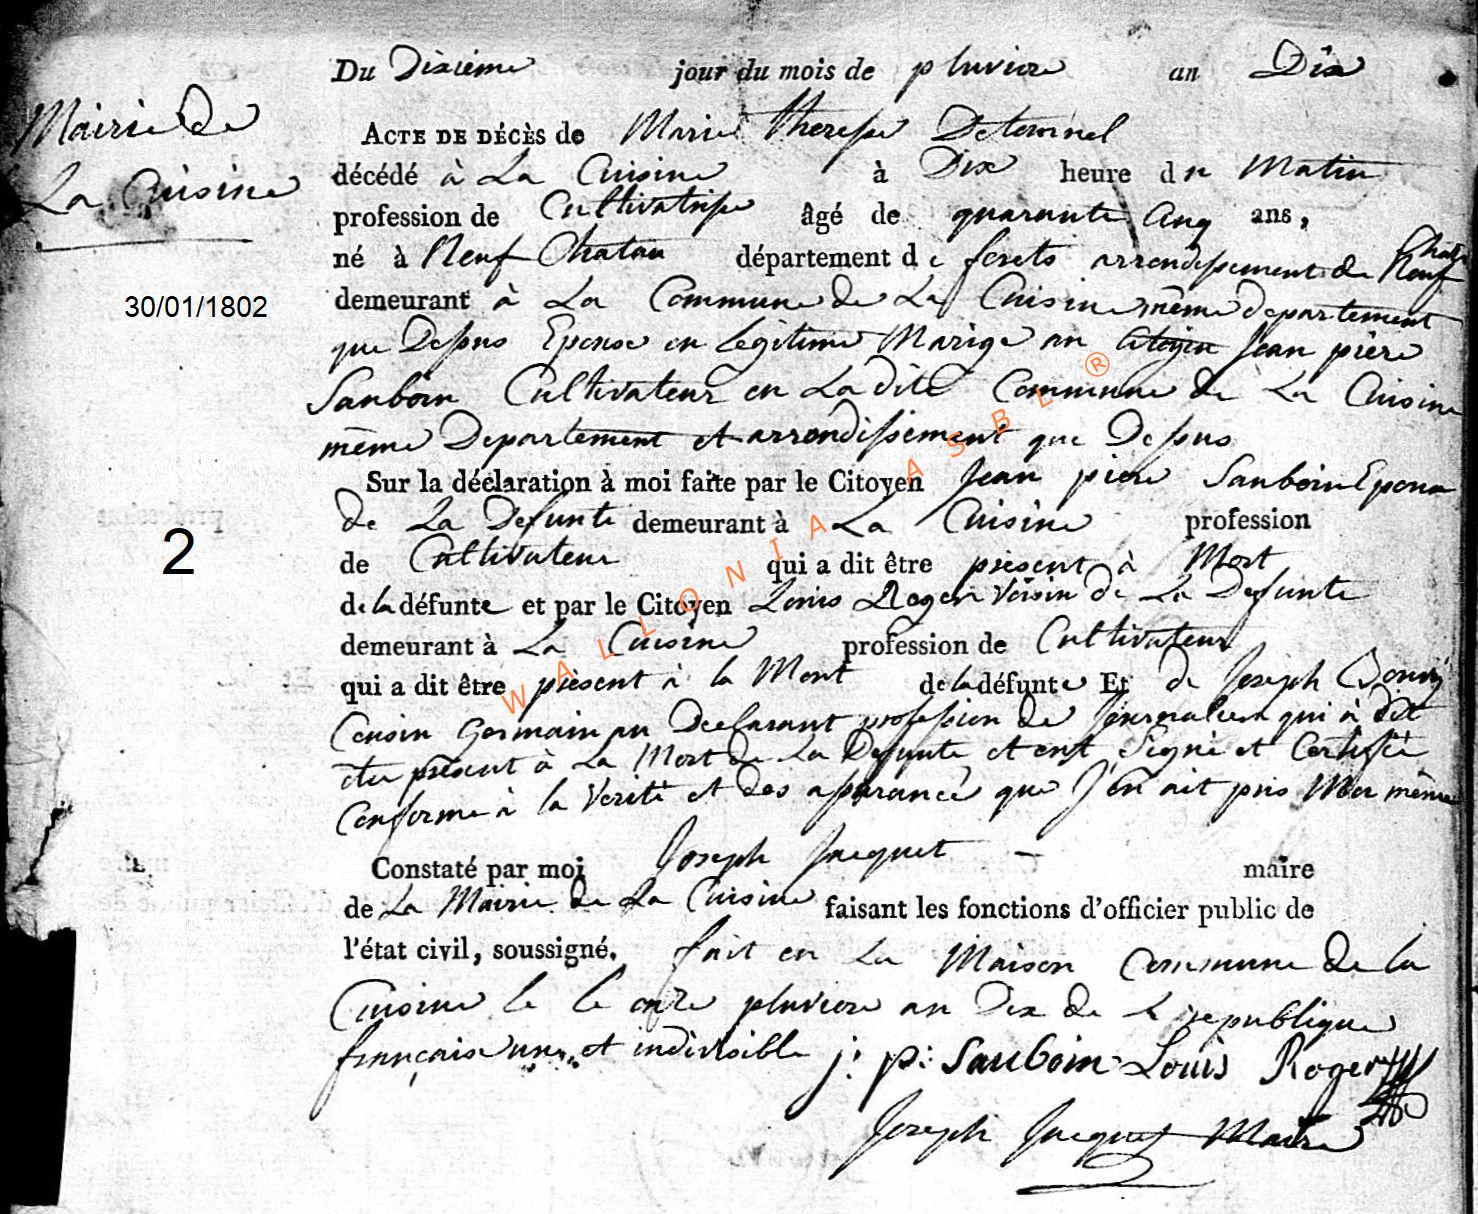 Du Dixième jour du mois de pluviose an Dix
Mairie de
La Cuisine
ACTE DE DÉCÈS de Marie Theresse
décédé à La Cuisine à Dix heure du Matin
profession de Cultivatrisse âgé de quarante Cinq ans,
né à Neuf Chatau département de forets arrondissement de Neuf Chatau
30/01/1802
demeurant à La Commune de La Cuisine même departement
que Dessus Epouse en Légitime Mariage au Citoyen Jean pière
Sauboin Cultivateur en La dite Commune de La Cuisine
même Departement et arrondissement que Dessus
Sur la déclaration à moi faite par le Citoyen Jean pière Sauboin Epoux
de La Defunte demeurant à La Cuisine profession
2
de Cultivateur qui a dit être présent à Mort
de la défunte et par le Citoyen Louis Roger Voisin de La Defunte
demeurant à La Cuisine profession de Cultivateur
qui a dit être présent à la Mort de la défunte Et de Joseph
Cousin Germain au Declarant profession de Journalier qui à dit
etre présent à La Mort de La Defunte et ont Signé et Certifié
Conforme à la Verité et des que J'en ait pris Moi même
Constaté par moi Joseph Jacquet — maire
de La Mairie de La Cuisine faisant les fonctions d'officier public de
l'état civil, soussigné. fait en La Maison Commune de la
Cuisine le le onze pluviose an Dix de la republique
française une et indivisible j: p: Sauboin Louis Roger
Joseph Jacquet Maire
WALLONIA ASBL ®